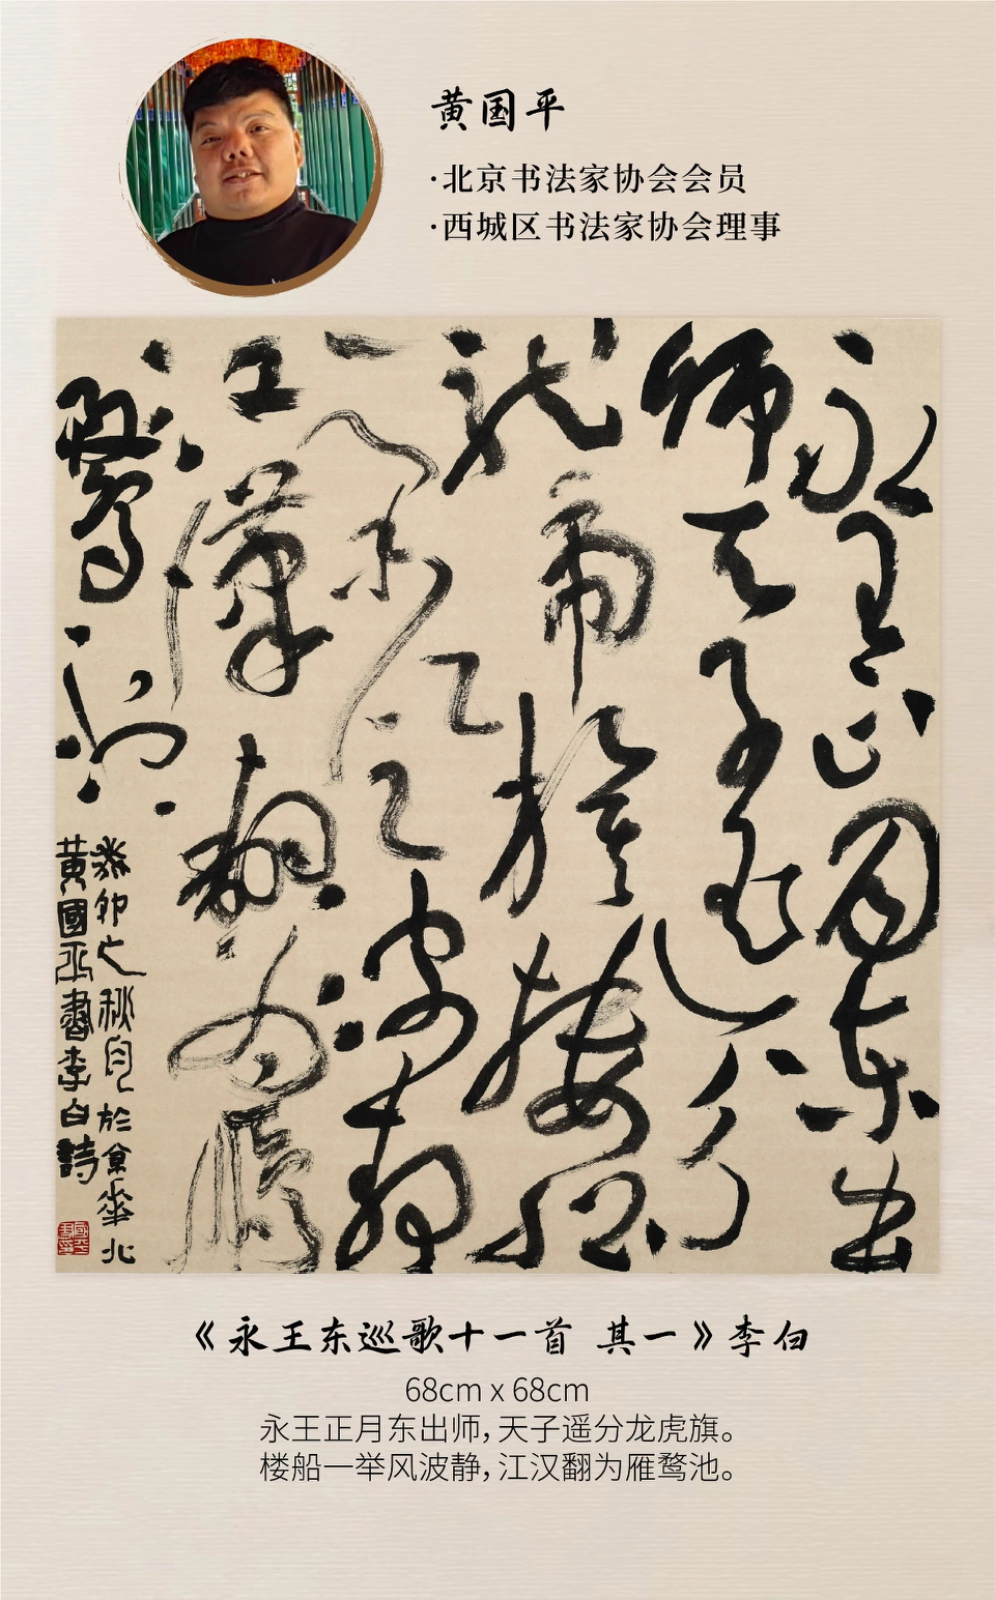 黄国平
·北京书法家协会会员
·西城区书法家协会理事
永王正月东出
师天子遥分
龙虎旗楼船
一举风波静
江汉翻为雁
鹜池
癸卯之秋月於京华北
黄國平書李白詩
《永王东巡歌十一首 其一》李白
68cm x 68cm
永王正月东出师，天子遥分龙虎旗。
楼船一举风波静，江汉翻为雁鹜池。